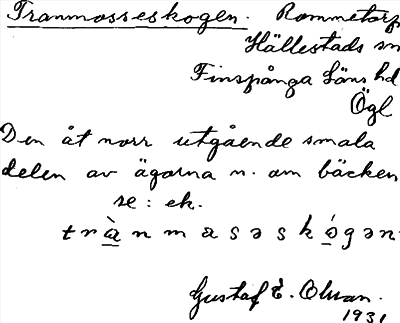 Tranmosseskogen. Rommetorp
Hällestads sn
Finspånga läns hd
Ögl
Den åt norr utgående smala
delen av ägorna n. om bäcken
se: ek.
trànmasəskógən.
Gustaf E. Olson.
1931